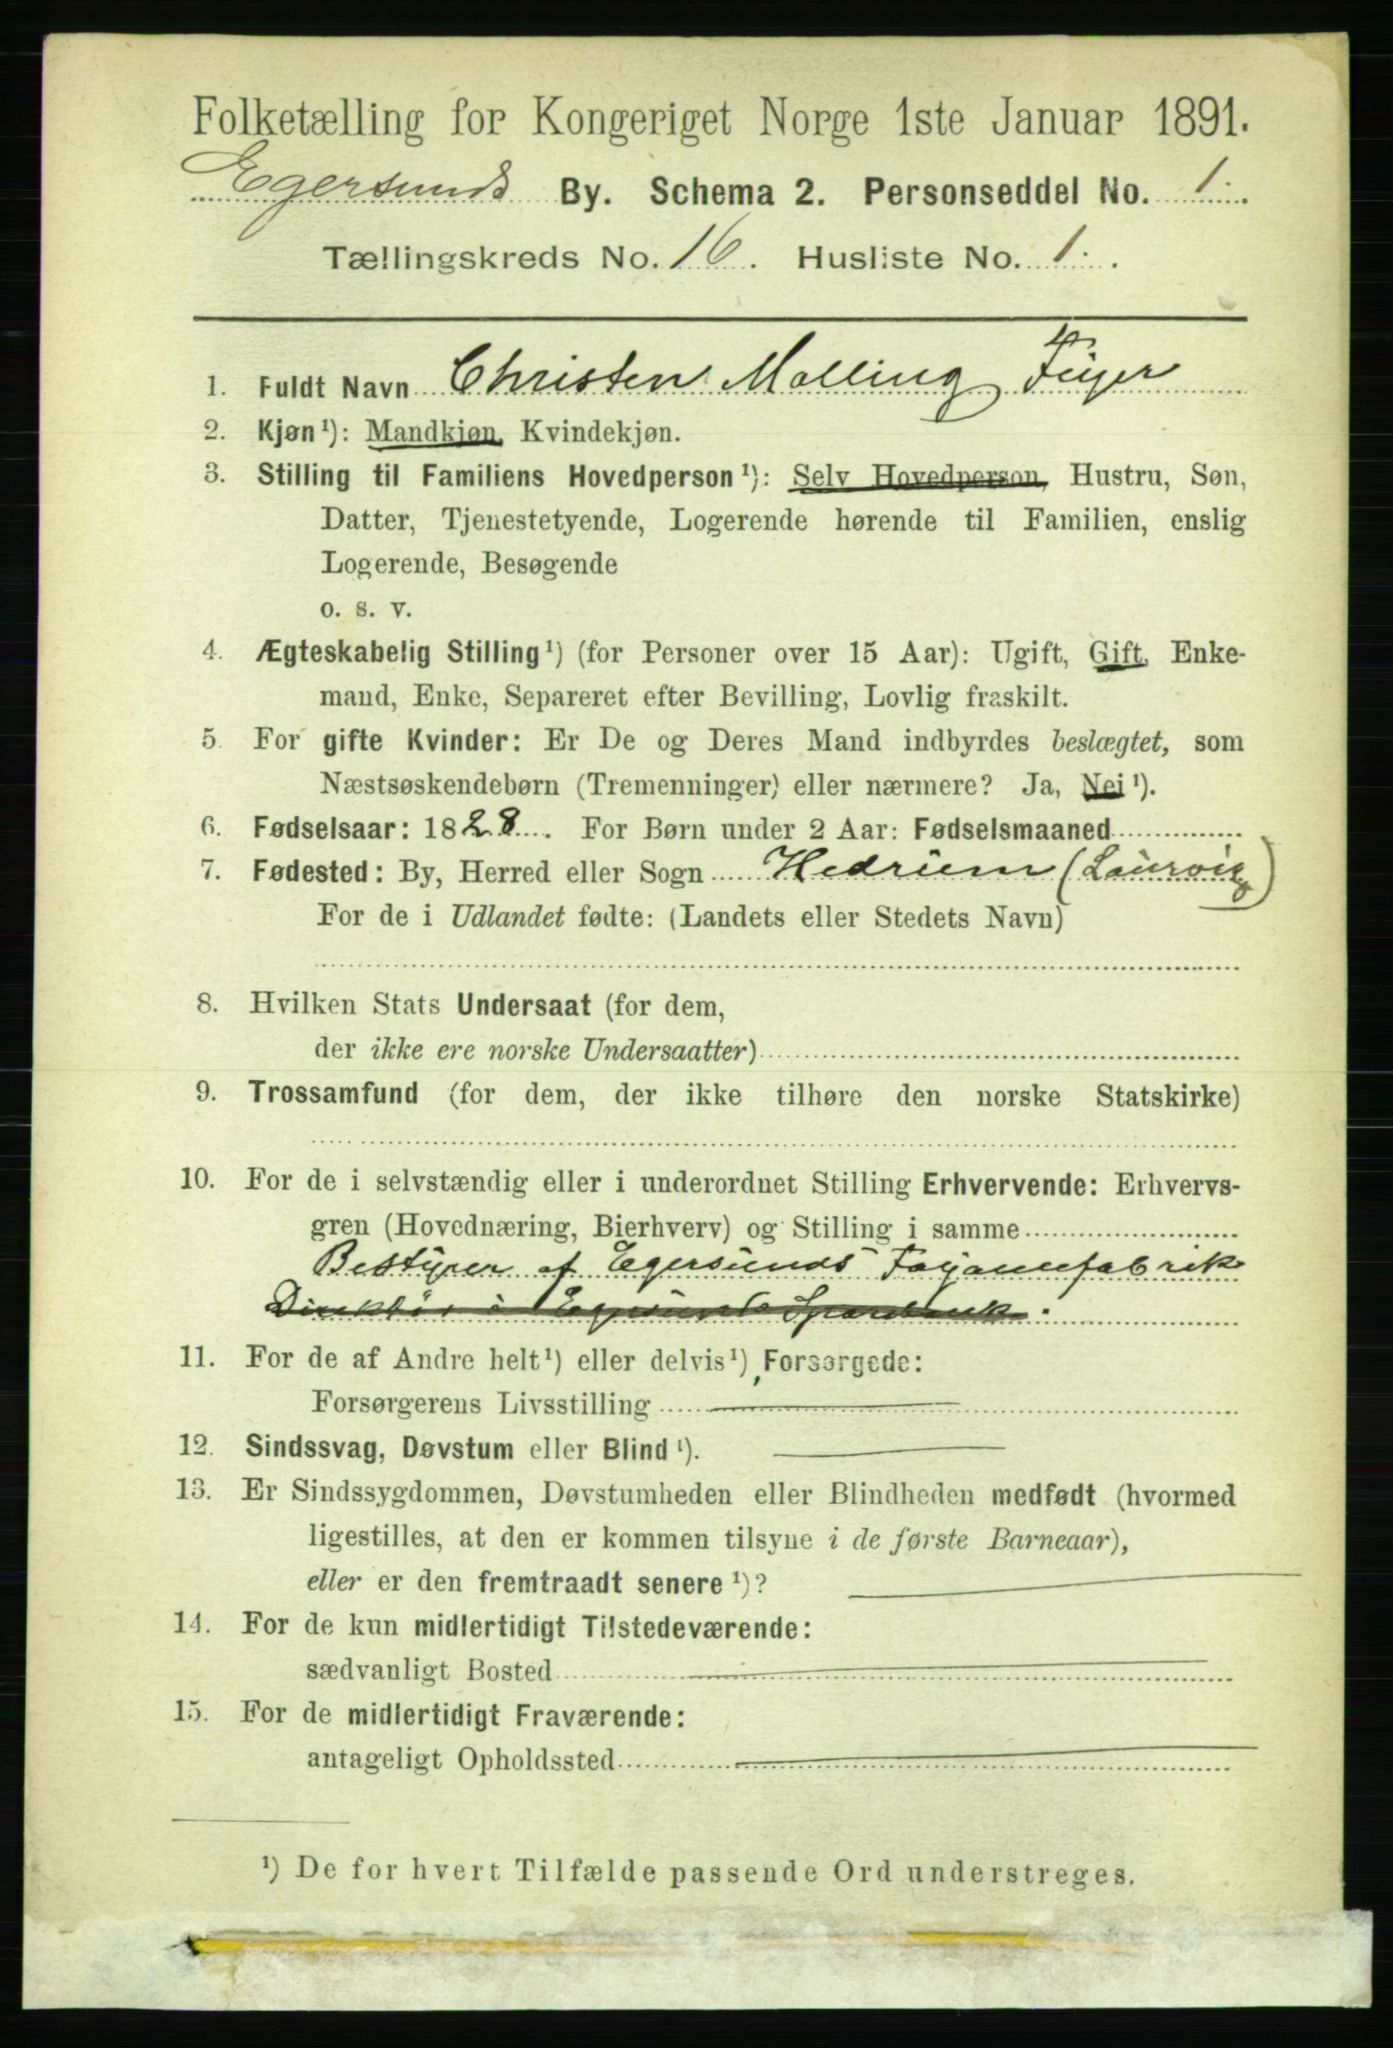 Folketælling for Kongeriget Norge 1ste Januar 1891.
Egersunds By. Schema 2. Personseddel No. 1.
Tællingskreds No. 16. Husliste No. 1.
1. Fuldt Navn Christen Malling Feijer
2. Kjøn¹): Mandkjøn, Kvindekjøn.
3. Stilling til Familiens Hovedperson¹): Selv Hovedperson, Hustru, Søn,
Datter, Tjenestetyende, Logerende hørende til Familien, enslig
Logerende, Besøgende
o. s. v.
4. Ægteskabelig Stilling¹) (for Personer over 15 Aar): Ugift, Gift, Enke-
mand, Enke, Separeret efter Bevilling, Lovlig fraskilt.
5. For gifte Kvinder: Er De og Deres Mand indbyrdes beslægtet, som
Næstsøskendebørn (Tremenninger) eller nærmere? Ja, Nei¹).
6. Fødselsaar: 1828. For Børn under 2 Aar: Fødselsmaaned
7. Fødested: By, Herred eller Sogn Hedrum (Laurvig)
For de i Udlandet fødte: (Landets eller Stedets Navn)
8. Hvilken Stats Undersaat (for dem,
der ikke ere norske Undersaatter)
9. Trossamfund (for dem, der ikke tilhøre den norske Statskirke)
10. For de i selvstændig eller i underordnet Stilling Erhvervende: Erhvervs-
gren (Hovednæring, Bierhverv) og Stilling i samme
Bestyrer af Egersunds Fayancefabrik
Direktør i Egersunds Sparebank.
11. For de af Andre helt¹) eller delvis¹) Forsørgede:
Forsørgerens Livsstilling
12. Sindssvag, Døvstum eller Blind¹).
13. Er Sindssygdommen, Døvstumheden eller Blindheden medfødt (hvormed
ligestilles, at den er kommen tilsyne i de første Barneaar),
eller er den fremtraadt senere¹)?
14. For de kun midlertidigt Tilstedeværende:
sædvanligt Bosted
15. For de midlertidigt Fraværende:
antageligt Opholdssted
¹) De for hvert Tilfælde passende Ord understreges.